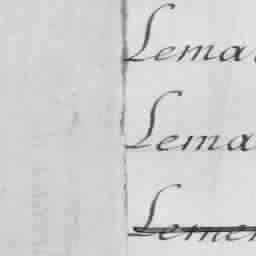 Lema
Lema
Lemen